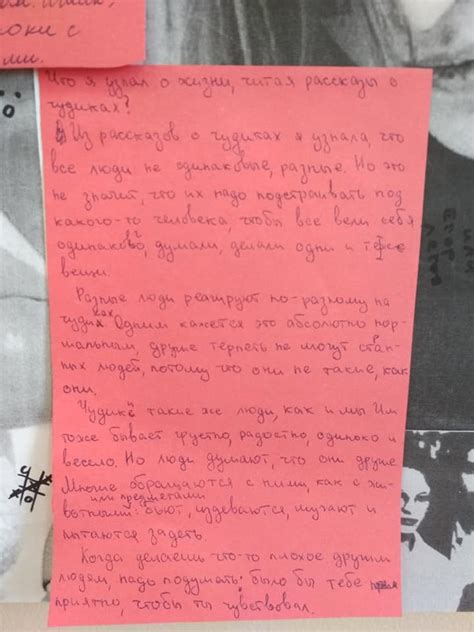 оки с
ми.
Что я узнал о жизни, читая рассказы о
чудиках?
Из рассказов о чудиках я узнала, что
все люди не одинаковые, разные. Но это
не значит, что их надо подстраивать под
какого-то человека, чтобы все вели себя
одинаково, думали, делали одни и те же
вещи.
Разные люди реагируют по-разному на
чудиков. Одним кажется это абсолютно нор-
мальным, другие терпеть не могут стран-
ных людей, потому что они не такие, как
они.
Чудики такие же люди, как и мы Им
тоже бывает грустно, радостно, одиноко и
весело. Но люди думают, что они другие
Многие обращаются с ними как с жи-
или предметами
вотными: бьют, издеваются, шугают и
пытаются задеть.
Когда делаешь что-то плохое другим
людям, надо подумать: было бы тебе
приятно, чтобы ты чувствовал.